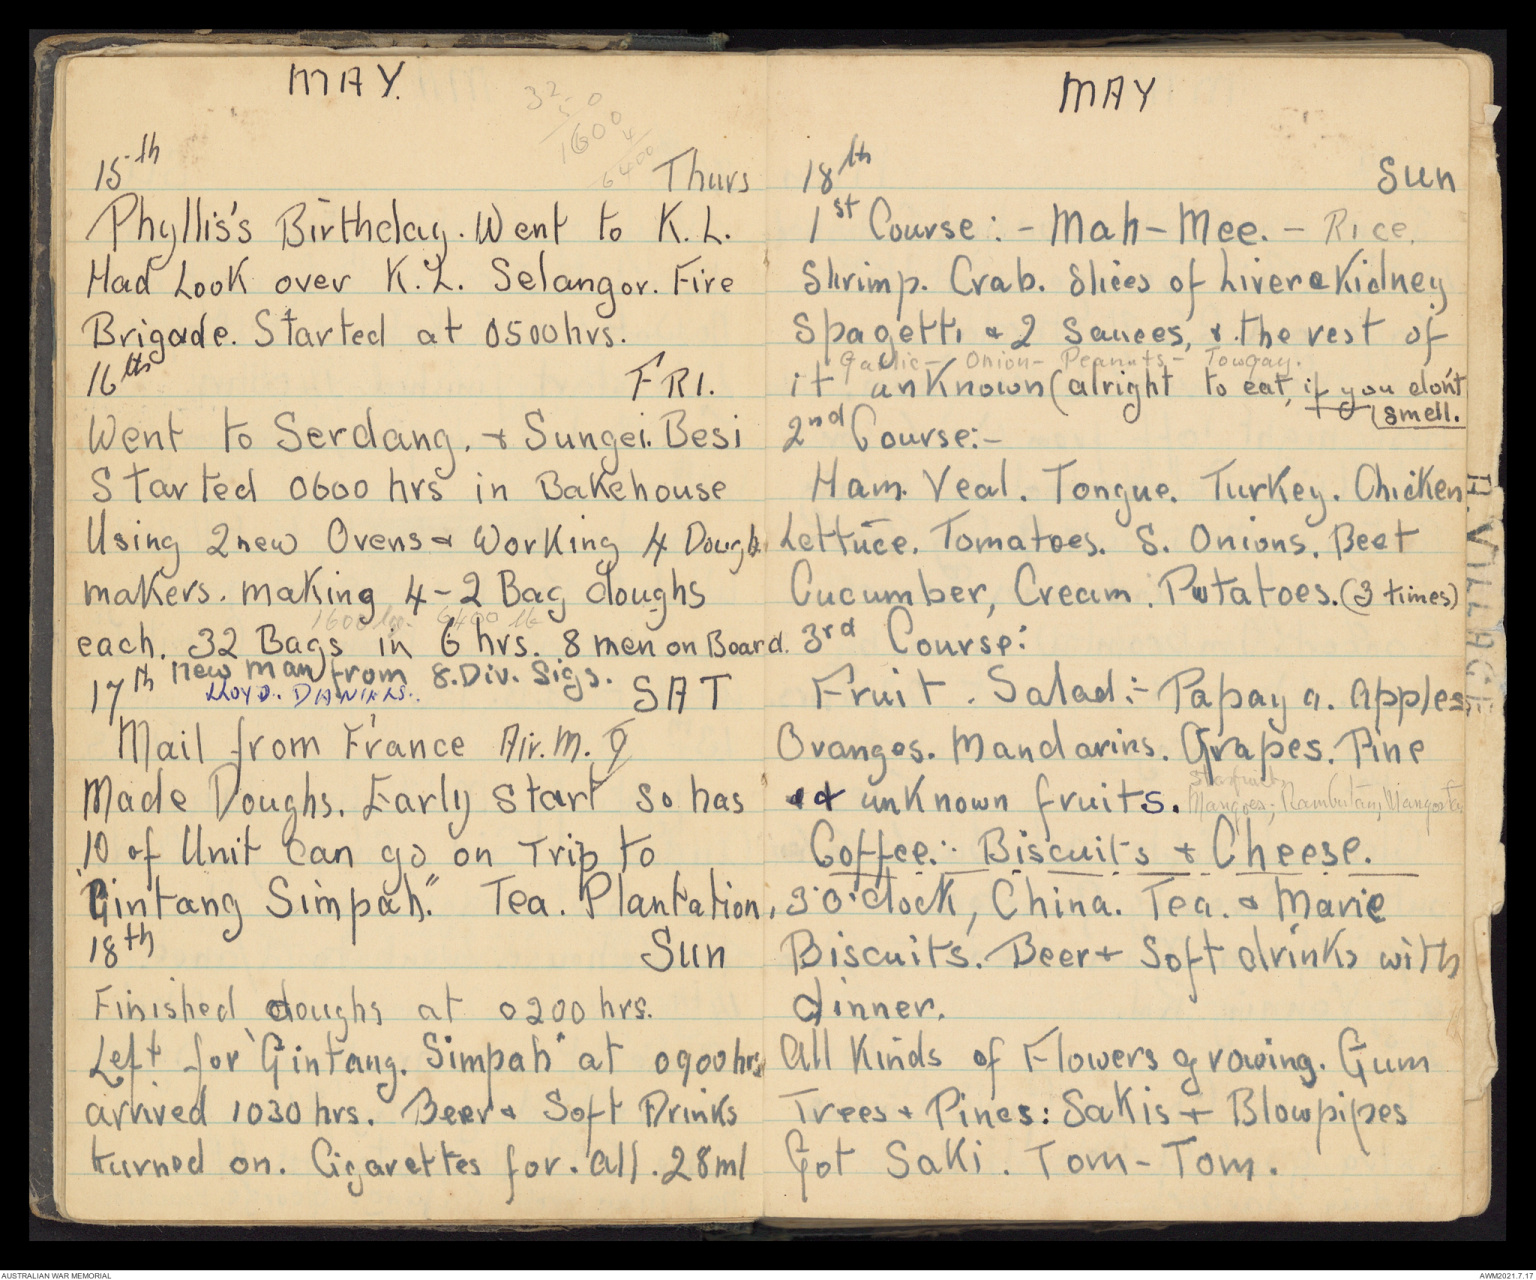 MAY.
32
50
1600
4
6400
15th Thurs
Phyllis's Birthday. Went to K.L.
Had Look over K.L. Selangor. Fire
Brigade. Started at 0500hrs.
16th FRI.
Went to Serdang. + Sungei. Besi
Started 0600 hrs in Bakehouse
Using 2 new Ovens + Working 4 Dough
makers. making 4-2 Bag doughs
1600 lbs. 6400 lb
each. 32 Bags in 6 hrs. 8 men on Board.
new man from 8.Div. Sigs.
17th LLOYD. DANIELS. SAT
Mail from France Air. M. 9
Made Doughs. Early start so has
10 of Unit can go on Trip to
"Gintang Simpah." Tea. Plantation.
18th Sun
Finished doughs at 0200 hrs.
Left for "Gintang. Simpah" at 0900hrs
arrived 1030 hrs. Beer + Soft Drinks
turned on. Cigarettes for. all. 28ml
MAY
18th Sun
1st Course: - Mah-Mee. - Rice.
Shrimp. Crab. Slices of Liver & Kidney
Spagetti + 2 sauces, + the rest of
Garlic - Onion - Peanuts - Towgay.
it unKnown (alright to eat, if you don't
smell.
2nd Course:-
Ham. Veal. Tongue. Turkey. Chicken
Lettuce. Tomatoes. S. Onions. Beet
Cucumber, Cream. Potatoes. (3 times)
3rd Course:
Fruit. Salad:- Papaya. apples,
Oranges. Mandarins. Grapes. Pine
Starfruit,
+ unKnown fruits. Mangoes, Rambutan, Mangosteen
Coffee:. Biscuits + Cheese.
3 o'clock, China. Tea. & Marie
Biscuits. Beer + Soft drinks with
dinner.
All Kinds of Flowers growing. Gum
Trees + Pines: Sakis + Blowpipes
Got Saki. Tom-Tom.
AUSTRALIAN WAR MEMORIAL
AWM2021.7.17